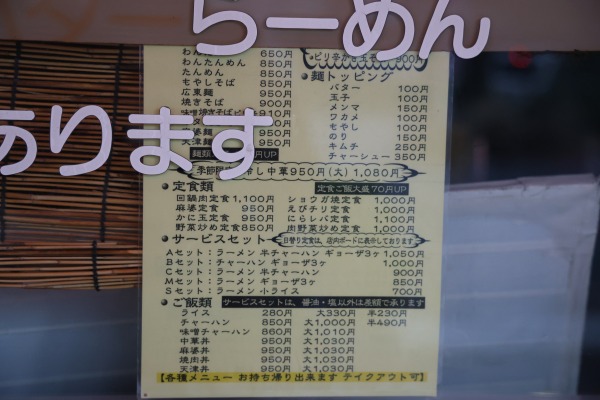 らーめん
あります
わんたん 650円
わんたんめん 850円
たんめん 850円
もやしそば 850円
広東麺 950円
焼きそば 900円
味噌焼きそば 910円
麻婆麺 950円
天津麺 950円
麺類 円UP
ピリ辛かき玉 900円
●麺トッピング
バター 100円
玉子 100円
メンマ 150円
ワカメ 100円
もやし 100円
のり 100円
キムチ 250円
チャーシュー 350円
冷し中華950円(大)1,080円
●定食類
定食ご飯大盛70円UP
回鍋肉定食 1,100円
麻婆定食 950円
かに玉定食 950円
野菜炒め定食 850円
ショウガ焼定食 1,000円
えびチリ定食 1,000円
にらレバ定食 1,100円
肉野菜炒め定食 1,000円
●サービスセット
日替り定食は、店内ボードに表示しております
Aセット:ラーメン 半チャーハン ギョーザ3ヶ 1,050円
Bセット:チャーハン ギョーザ3ヶ 1,000円
Cセット:ラーメン 半チャーハン 900円
Mセット:ラーメン ギョーザ3ヶ 850円
Sセット:ラーメン 小ライス 700円
●ご飯類
サービスセットは、醤油・塩以外は差額で承ります
ライス 280円 大330円 半230円
チャーハン 850円 大1,000円 半490円
味噌チャーハン 860円 大1,010円
中華丼 950円 大1,030円
麻婆丼 950円 大1,030円
焼肉丼 950円 大1,030円
天津丼 950円 大1,030円
【各種メニュー お持ち帰り出来ます テイクアウト可】